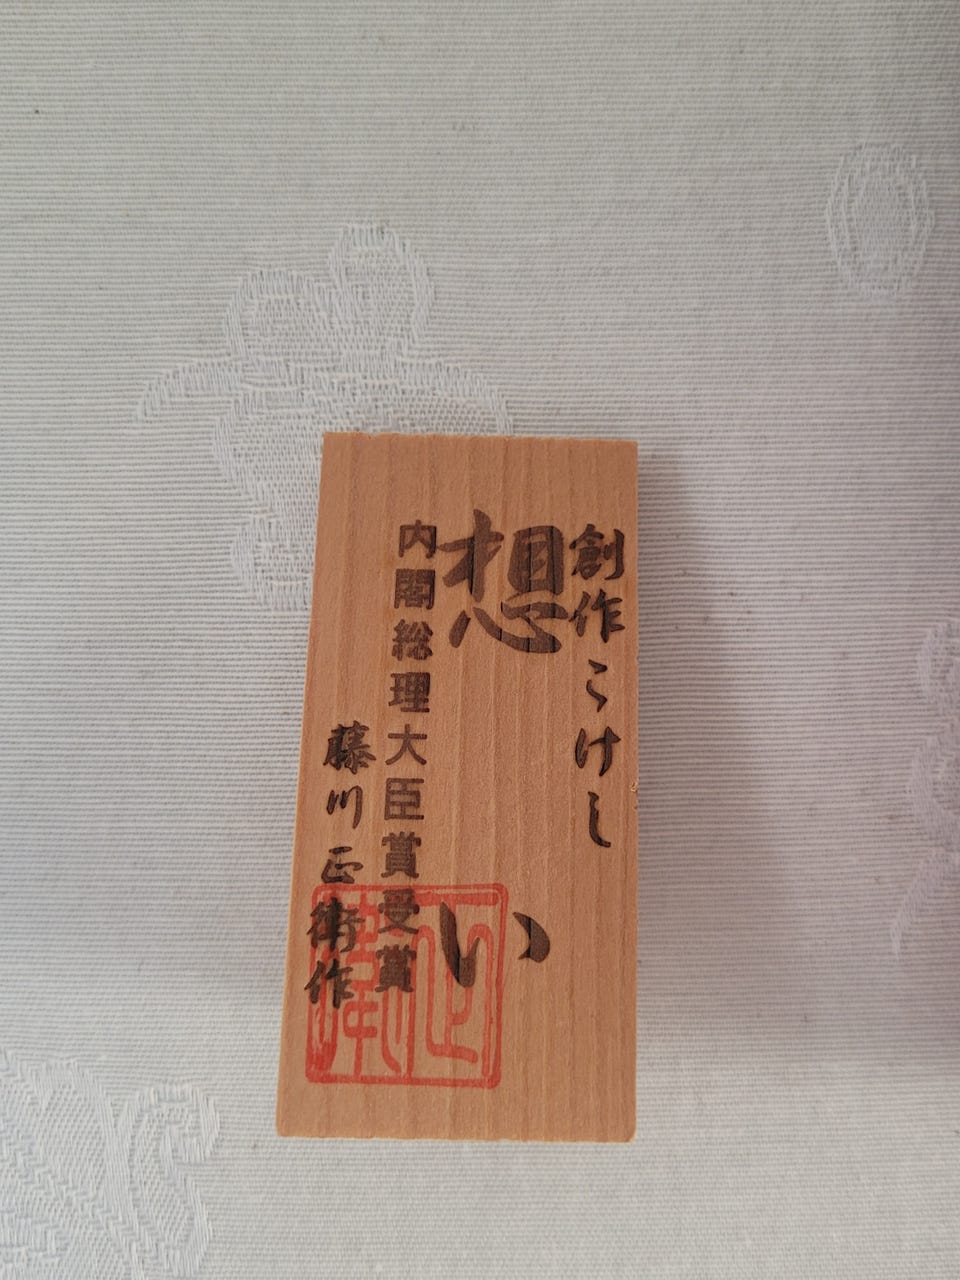 創作こけし
想い
内閣総理大臣賞受賞
藤川正衛作
正衛